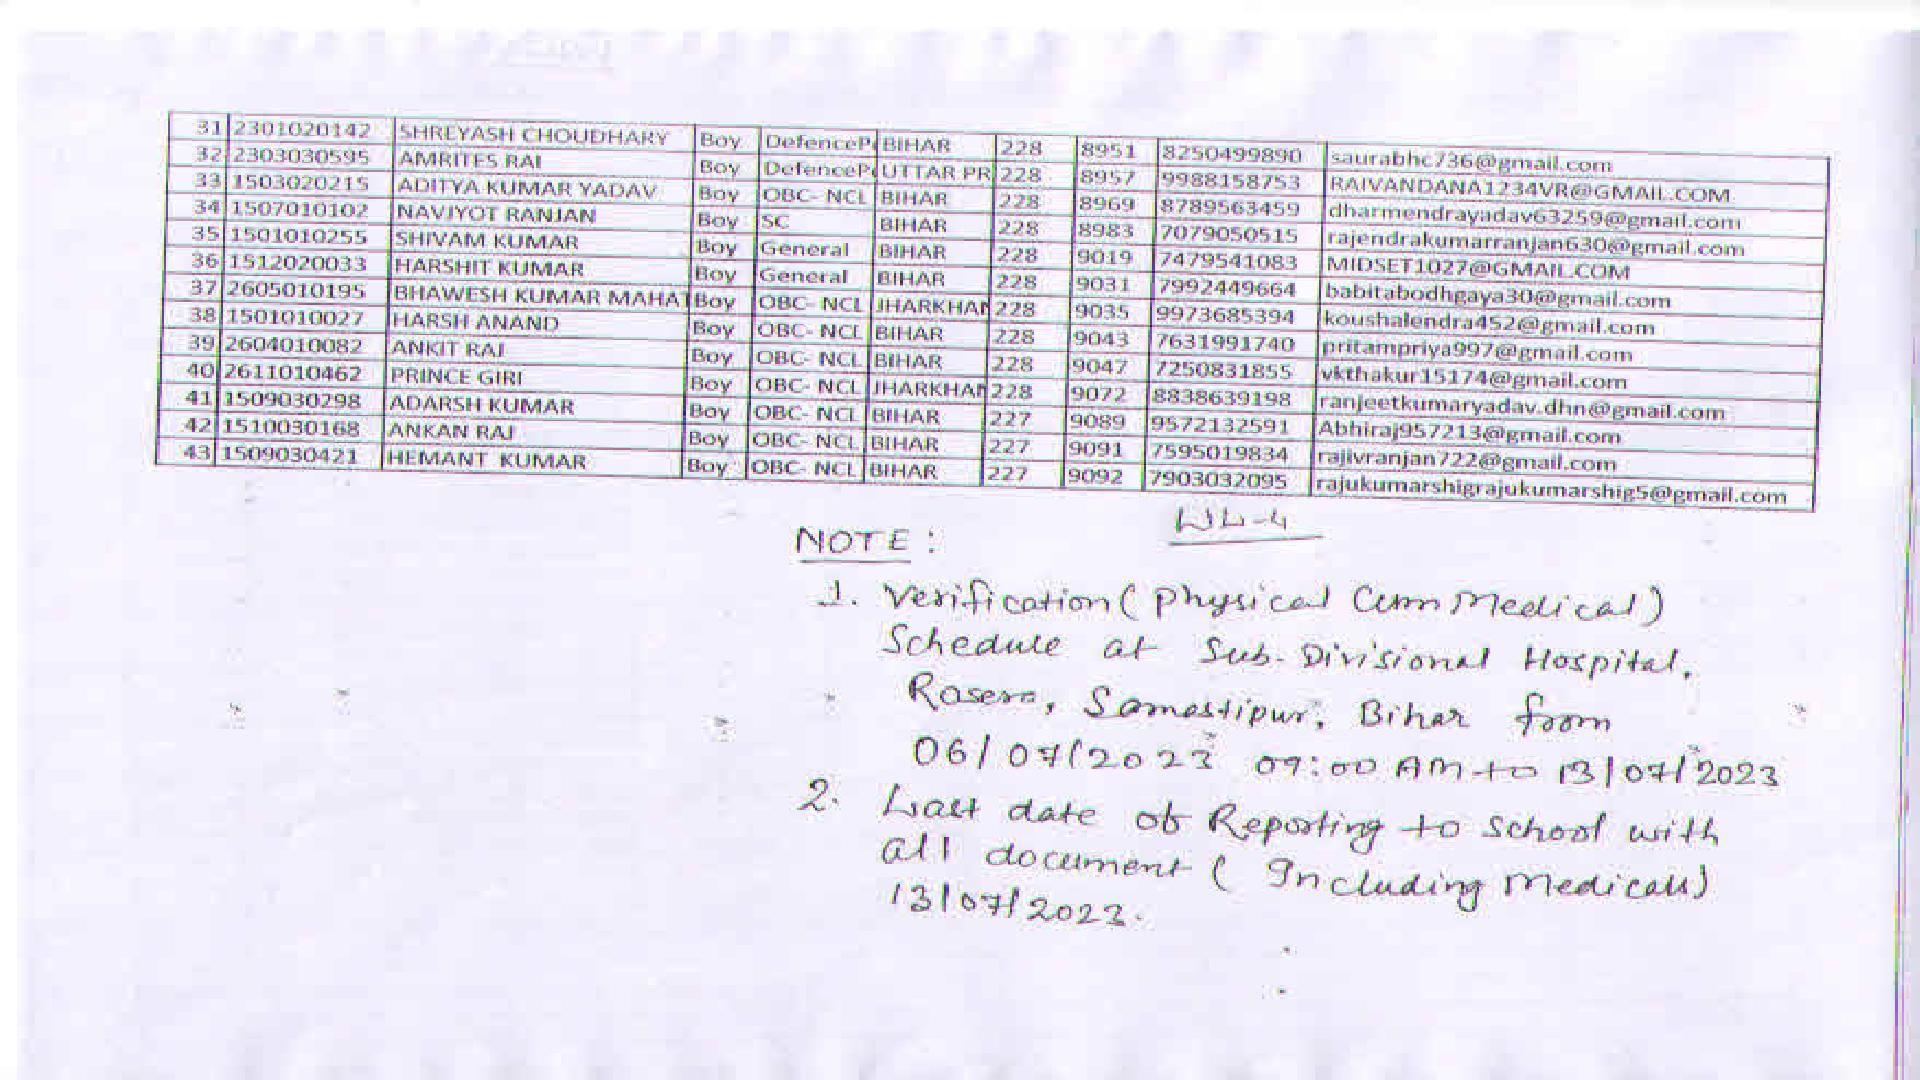 31 2301020142 SHREYASH CHOUDHARY Boy DefenceP BIHAR 228 8951 8250499890 saurabhc736@gmail.com
32 2303030595 AMRITES RAI Boy DefenceP UTTAR PR 228 8957 9988158753 RAIVANDANA1234VR@GMAIL.COM
33 1503020215 ADITYA KUMAR YADAV Boy OBC- NCL BIHAR 228 8969 8789563459 dharmendrayadav63259@gmail.com
34 1507010102 NAVJYOT RANJAN Boy SC BIHAR 228 8983 7079050515 rajendrakumarranjan630@gmail.com
35 1501010255 SHIVAM KUMAR Boy General BIHAR 228 9019 7479541083 MIDSET1027@GMAIL.COM
36 1512020033 HARSHIT KUMAR Boy General BIHAR 228 9031 7992449664 babitabodhgaya30@gmail.com
37 2605010195 BHAWESH KUMAR MAHAT Boy OBC- NCL JHARKHAN 228 9035 9973685394 koushalendra452@gmail.com
38 1501010027 HARSH ANAND Boy OBC- NCL BIHAR 228 9043 7631991740 pritampriya997@gmail.com
39 2604010082 ANKIT RAJ Boy OBC- NCL BIHAR 228 9047 7250831855 vkthakur15174@gmail.com
40 2611010462 PRINCE GIRI Boy OBC- NCL JHARKHAN 228 9072 8838639198 ranjeetkumaryadav.dhn@gmail.com
41 1509030298 ADARSH KUMAR Boy OBC- NCL BIHAR 227 9089 9572132591 Abhiraj957213@gmail.com
42 1510030168 ANKAN RAJ Boy OBC- NCL BIHAR 227 9091 7595019834 rajivranjan722@gmail.com
43 1509030421 HEMANT KUMAR Boy OBC- NCL BIHAR 227 9092 7903032095 rajukumarshigrajukumarshig5@gmail.com
WL-4
NOTE :
1. Verification (Physical Cum Medical)
Schedule at Sub-Divisional Hospital,
Rosera, Samastipur, Bihar from
06/07/2023 09:00 AM to 13/07/2023
2. Last date of Reporting to School with
all document (Including Medical)
13/07/2023.